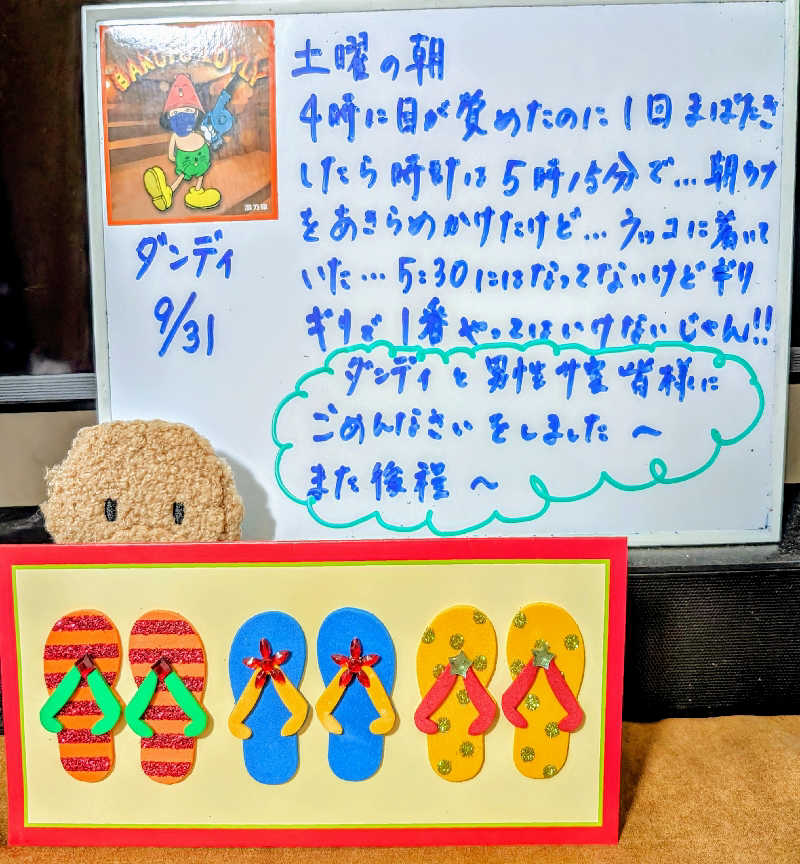 土曜の朝
4時に目が覚めたのに1回まばたき
したら時計は5時15分で…朝ウナ
をあきらめかけたけど…ウッコに着いて
いた…5:30にはなってないけどギリ
ギリで1番やってはいけないじゃん!!
ダンディと男性サ室皆様に
ごめんなさいをしました〜
また後程〜
ダンディ
9/31